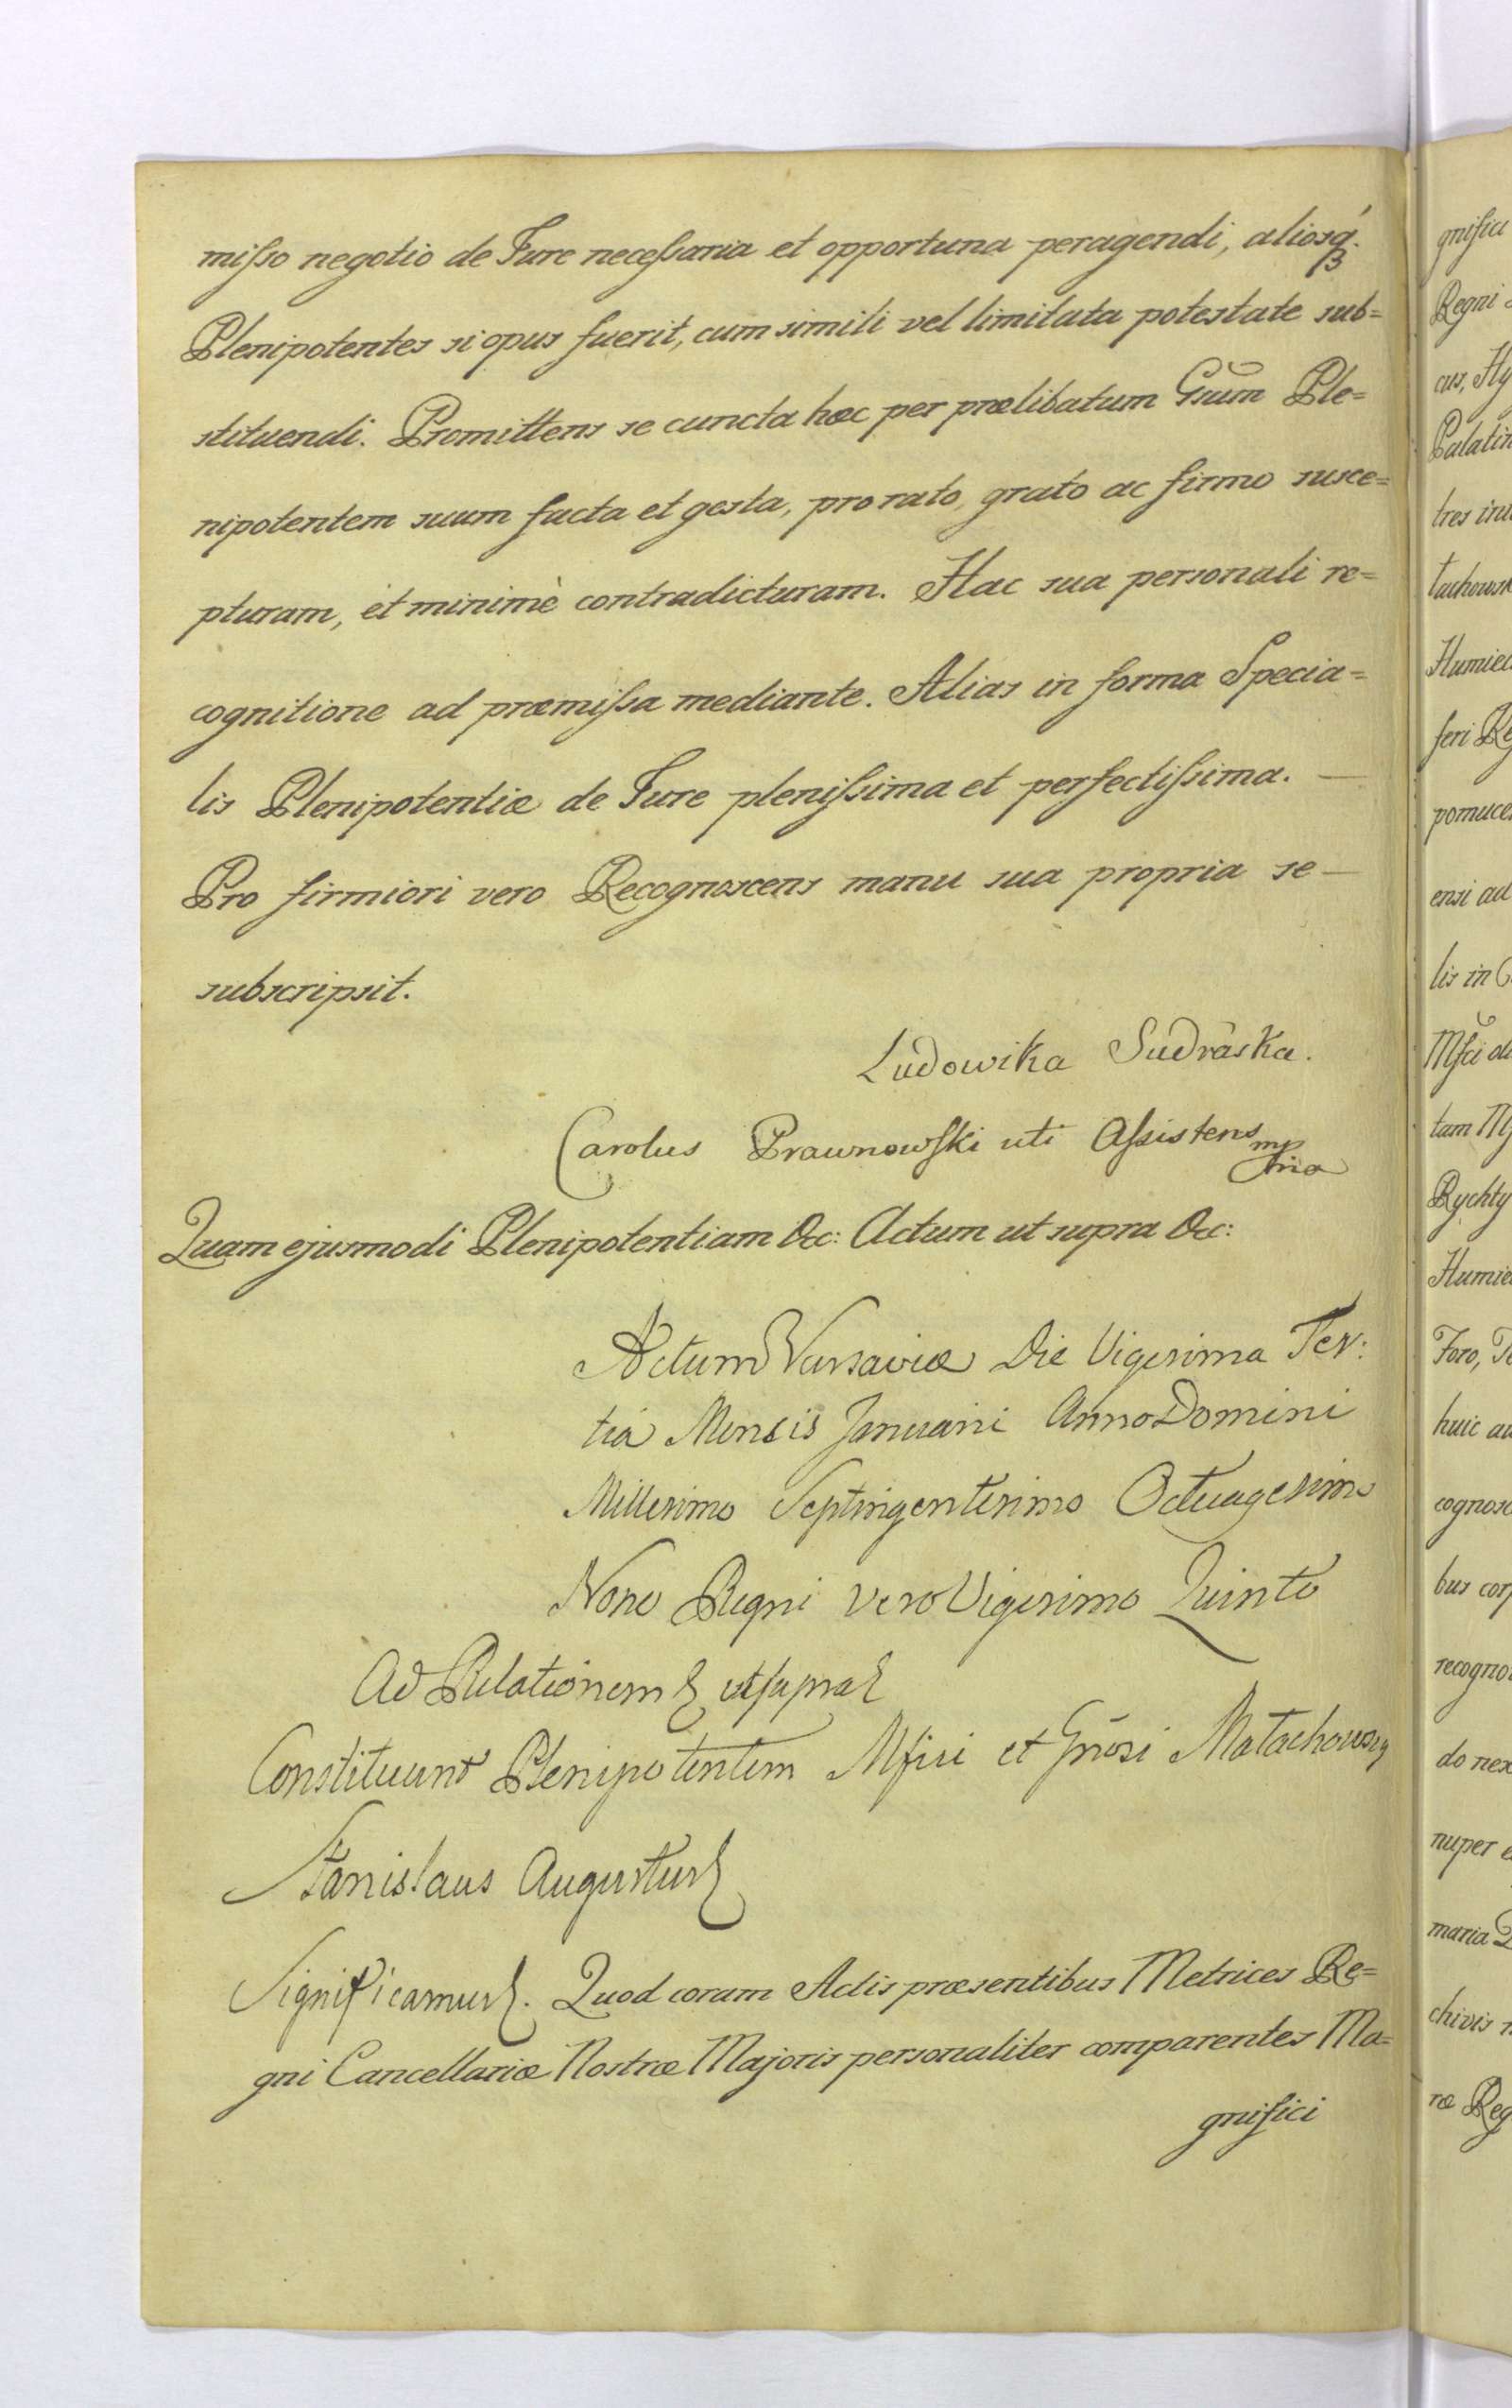 misso negotio de Jure necessaria et opportuna peragendi, aliosq́ꝫ.
Plenipotentes si opus fuerit, cum simili vel limitata potestate sub=
stituendi. Promittens se cuncta hæc per prælibatum Gsum Ple=
nipotentem suum facta et gesta, pro rato, grato ac firmo susce=
pturam, et minimè contradicturam. Hac sua personali re=
cognitione ad præmissa mediante. Alias in forma Specia=
lis Plenipotentiæ de Jure plenissima et perfectissima. —
Pro firmiori vero Recognoscens manu sua propria se —
subscripsit.
Ludowika
Carolus Prawnowski uti Assistens mp
Quam ejusmodi Plenipotentiam &c: Actum ut supra &c:
Actum Varsaviæ Die Vigesima Ter:
tia Mensis Januarii Anno Domini
Millesimo Septingentesimo Octuagesimo
Nono Regni vero Vigesimo Quinto
Ad Relationem ut supra
Constituunt Plenipotentem Mfici et Gnōsi
Stanislaus Augustus
Significamus. Quod coram Actis præsentibus Metrices Re=
gni Cancellariæ Nostræ Majoris personaliter comparentes Ma=
gnifici
gnifici
Regni
cus, Hy
Palatin
tres in
tachowsk
Humiec
feri Re
pomuce
ensi ad
lis in
Mfci
tam M
Rychty
Humie
Foro, Te
huic au
cognosc
bus corp
recogno
do nex
nuper e
maria
chivis
ræ Reg